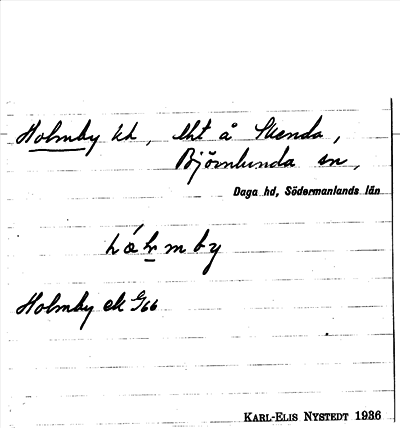 Holmby kd, lht å Skenda,
Björnlunda sn,
Daga hd, Södermanlands län
hɷ́lmby
Holmby ek G66
KARL-ELIS NYSTEDT 1936